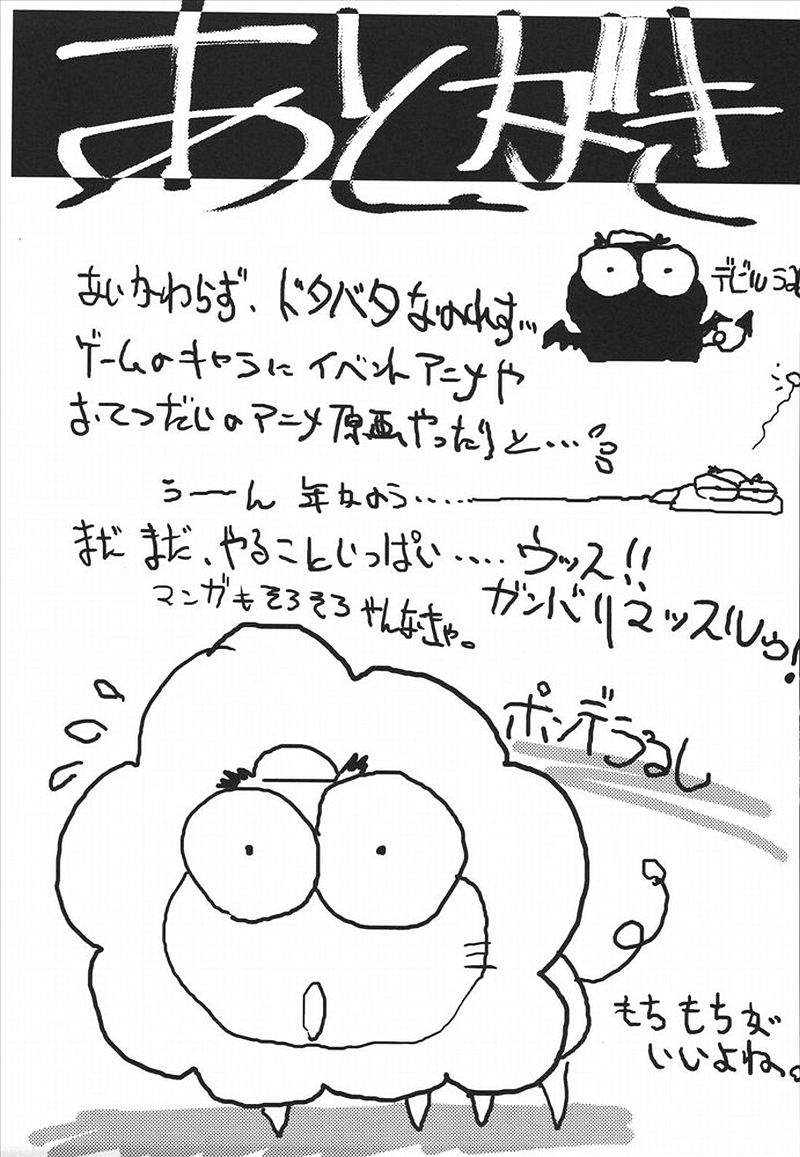 あとがき
あいかわらず、ドタバタなのれす…
デビルうるし
ゲームのキャラに イベントアニメや
おてつだいのアニメ原画やったりと…
うーーん 年かのう……
まだ まだ、やることいっぱい…. ウッス!!
ガンバリマッスルゥ!
マンガもそろそろ やんなきゃ。
ポンデうるし
もち もちが
いいよね。